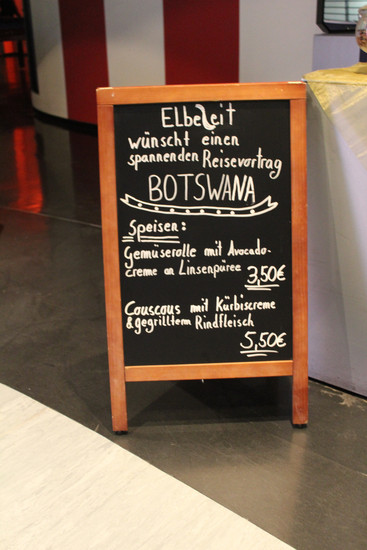 ElbeZeit
wünscht einen
spannenden Reisevortrag
BOTSWANA
Speisen:
Gemüserolle mit Avocado-
creme an Linsenpüree 3,50€
Couscous mit Kürbiscreme
& gegrilltem Rindfleisch
5,50€